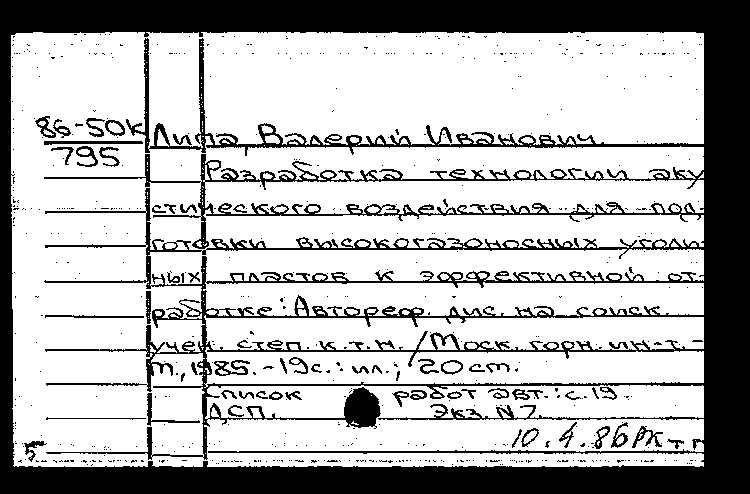 86-50К Липа, Валерий Иванович.
795
Разработка технологии аку
стического воздействия для под-
готовки высокогазоносных уголь
ных пластов к эффективной от-
работке: Автореф. дис. на соиск.
учен. степ. к.т.н. / Моск. горн. ин-т. -
М., 1985. - 19с.: ил.; 20 cm.
Список работ авт.: с.19.
ДСП. Экз. N 7.
10.4.86
5